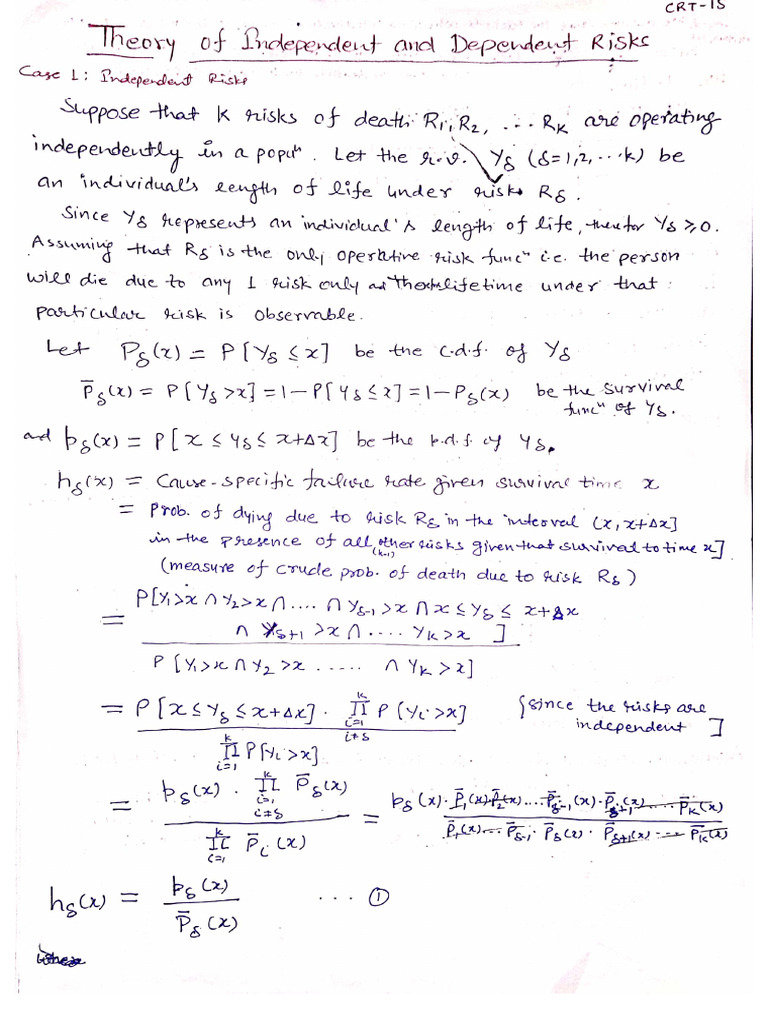 CRT-15
Theory of Independent and Dependent Risks
Case 1: Independent Risks
Suppose that K risks of death R₁, R₂, ... Rₖ are operating
independently in a popuⁿ. Let the r.v. Yδ (δ=1,2,...k) be
an individual's length of life under risk Rδ.
Since Yδ represents an individual's length of life, therefor Yδ ≥ 0.
Assuming that Rδ is the only operative risk funcⁿ i.e. the person
will die due to any 1 risk only lifetime under that
particular risk is observable.
Let Pδ(x) = P[Yδ ≤ x] be the c.d.f. of Yδ
P̄δ(x) = P[Yδ > x] = 1 − P[Yδ ≤ x] = 1 − Pδ(x) be the survival
funcⁿ of Yδ.
and pδ(x) = P[x ≤ Yδ ≤ x+Δx] be the p.d.f of Yδ.
hδ(x) = Cause-specific failure rate given survival time x
= Prob. of dying due to risk Rδ in the interval (x, x+Δx]
in the presence of all other risks given that survived to time x]
(k-1)
(measure of crude prob. of death due to risk Rδ)
= P[Y₁>x ∩ Y₂>x ∩ .... ∩ Yδ₋₁>x ∩ x ≤ Yδ ≤ x+Δx
∩ Yδ₊₁ >x ∩ .... Yₖ>x ]
P [Y₁>x ∩ Y₂>x ..... ∩ Yₖ>x]
= P[x ≤ Yδ ≤ x+Δx] . k ∏ i=1 i≠δ P(Yi>x] [since the risks are
independent ]
k ∏ i=1 P[Yi>x]
= pδ(x) . k ∏ i=1 i≠δ P̄δ(x) = pδ(x).P̄₁(x).P̄₂(x)....P̄δ₋₁(x).P̄δ₊₁(x)..... P̄ₖ(x)
k ∏ i=1 P̄i(x) P̄₁(x)... P̄δ₋₁. P̄δ(x). P̄δ₊₁(x) .... P̄ₖ(x)
hδ(x) = pδ(x) ... ①
P̄δ(x)